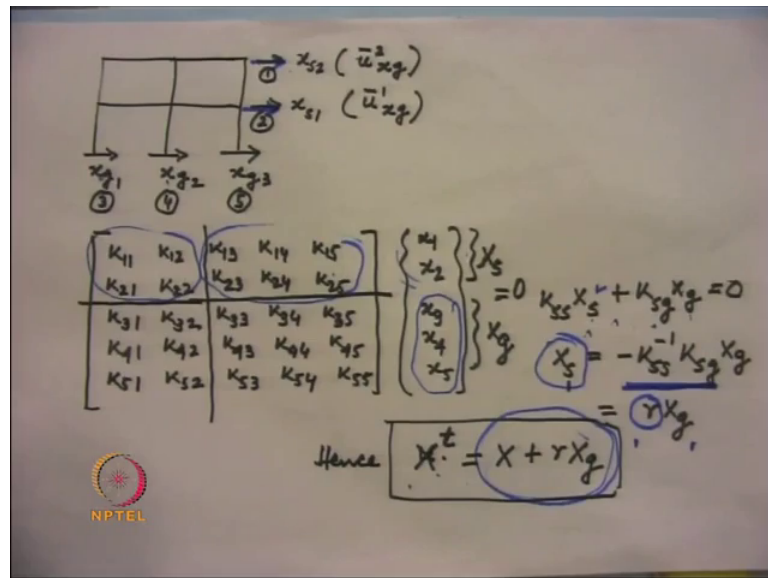 ① → x_s2 ( ū²_xg )
② → x_s1 ( ū¹_xg )
x_g1 x_g2 x_g3
③ ④ ⑤
K11 K12 K13 K14 K15
K21 K22 K23 K24 K25
K31 K32 K33 K34 K35
K41 K42 K43 K44 K45
K51 K52 K53 K54 K55
x1
x2
x3
x4
x5
} X_s
} X_g
= 0
K_ss X_s + K_sg X_g = 0
X_s = -K_ss^-1 K_sg X_g
= r X_g
Hence X^t = X + r X_g
NPTEL